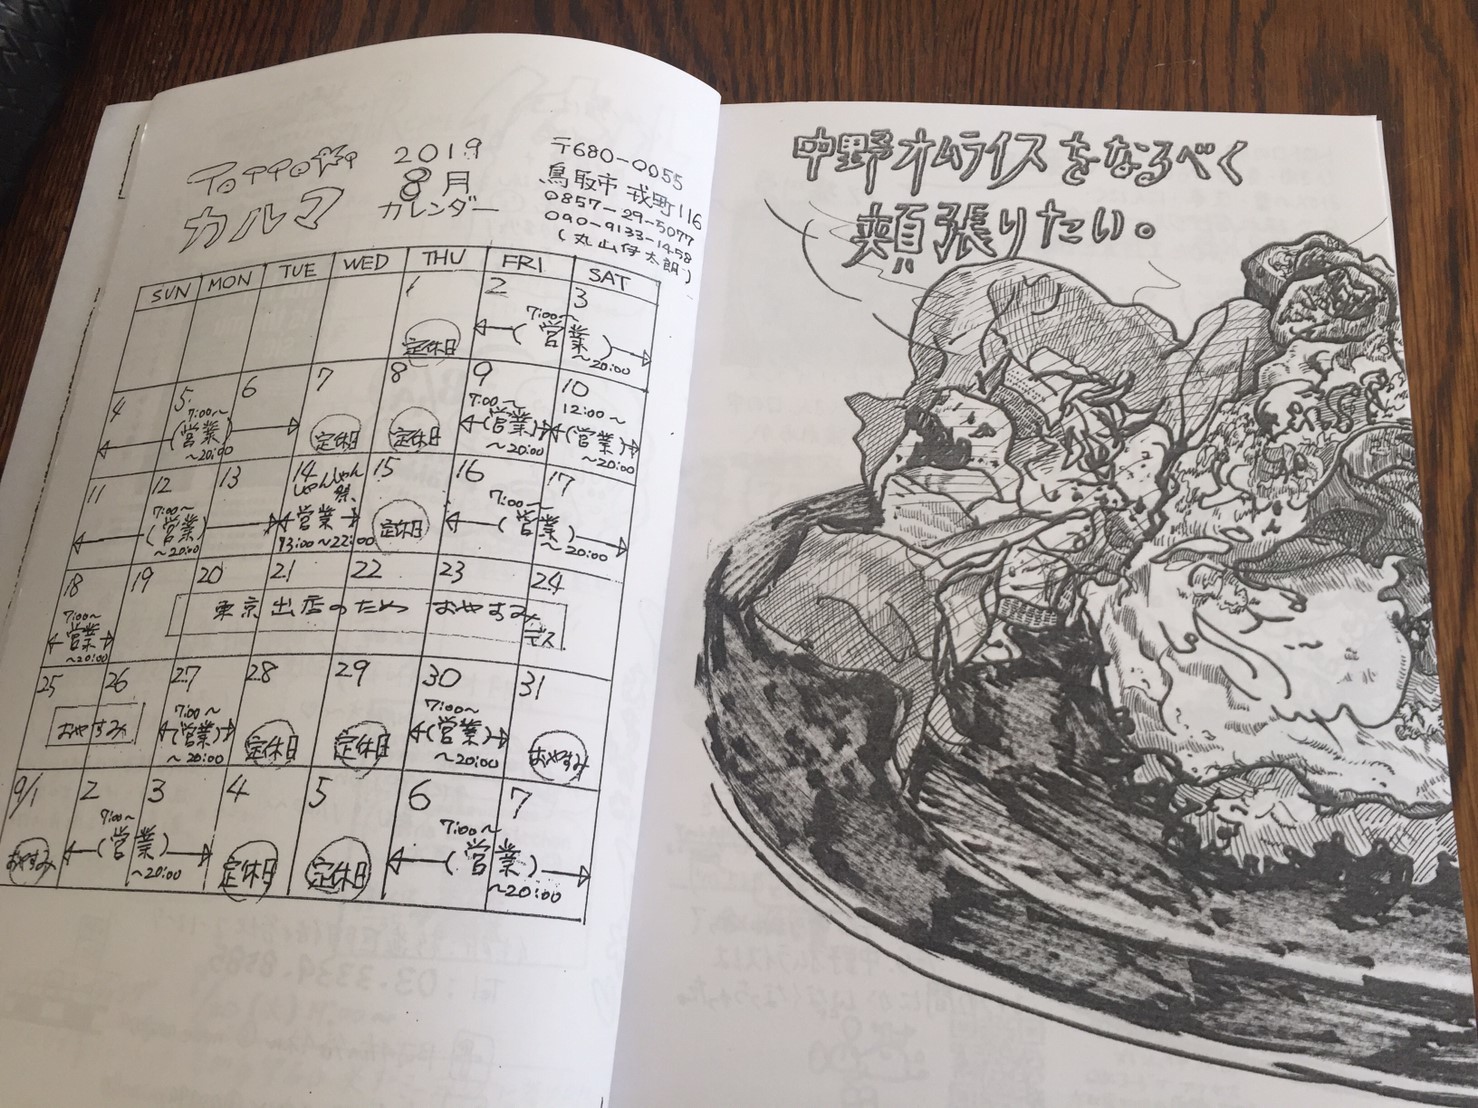 Tottori
カルマ
2019
8月
カレンダー
〒680-0055
鳥取市 戎町116
0857-29-5077
090-9133-1458
(丸山伊太朗)
SUN MON TUE WED THU FRI SAT
1 2 3
定休日
7:00〜
(営業)
〜20:00
4 5 6 7 8 9 10
7:00〜
(営業)
〜20:00
定休日
定休日
7:00〜
(営業)
〜20:00
12:00〜
(営業)
〜20:00
11 12 13 14 15 16 17
7:00〜
(営業)
〜20:00
しゃんしゃん
祭、
営業
13:00〜22:00
定休日
7:00〜
(営業)
〜20:00
18 19 20 21 22 23 24
7:00〜
営業
〜20:00
東京出店のため おやすみ
デス
25 26 27 28 29 30 31
おやすみ
7:00〜
(営業)
〜20:00
定休日
定休日
7:00〜
(営業)
〜20:00
おやすみ
9/1 2 3 4 5 6 7
おやすみ
7:00〜
(営業)
〜20:00
定休日
定休日
7:00〜
(営業)
〜20:00
中野オムライスをなるべく
頬張りたい。